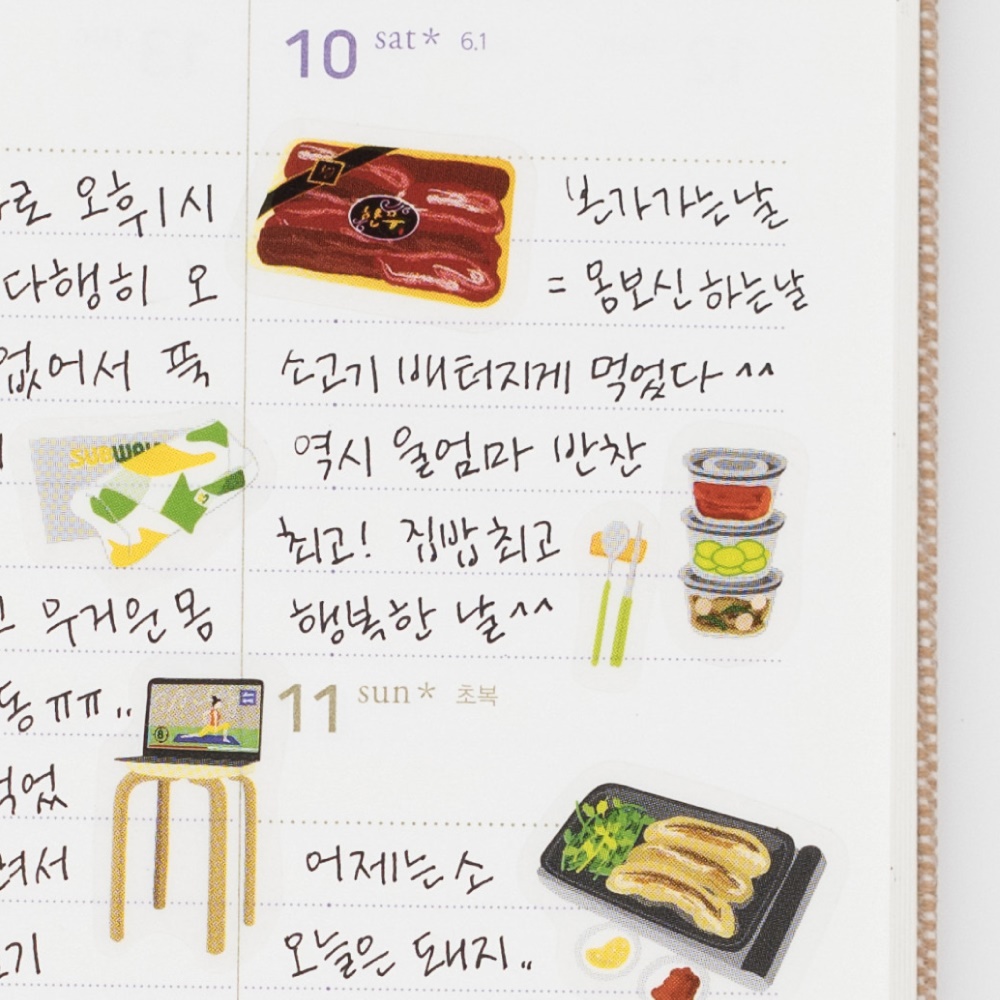 로 오휘시
다행히 오
없어서 푹
SUBWAY
무거운몸
동 ㅠㅠ..
먹었
려서
기
10 sat* 6.1
한우
본가가는날
= 몸보신하는날
소고기 배터지게 먹었다 ^^
역시 울엄마 반찬
최고! 집밥최고
행복한 날^^
11 sun* 초복
어제는소
오늘은 돼지..